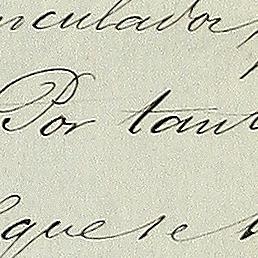 nculador
Por tant
que se